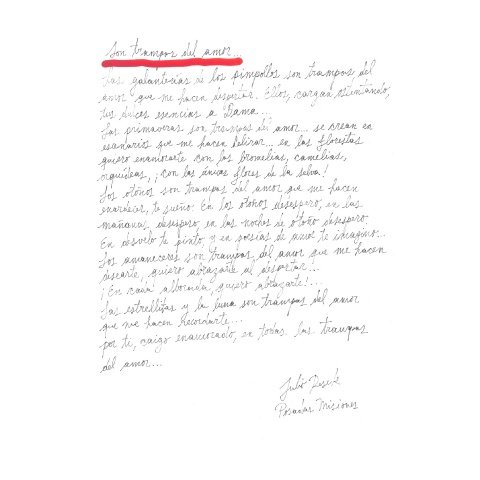 Son trampas del amor...
Las galanterías de los pimpollos son trampas del
amor que me hacen despertar. Ellos, cargan ostentando,
tus dulces esencias a Dama...
Las primaveras son trampas del amor... se crean en
esenarios que me hacen delirar... en las florestas
quiero enamorarte con las bromelias, camelias,
orquídeas, ¡con las únicas flores de la selva!
Los otoños son trampas del amor que me hacen
enardecer, te sueño. En los otoños desespero, en las
mañanas desespero, en las noches de otoño desespero.
En desvelo te pinto, y en poesías de amor te imagino...
Los amaneceres son trampas del amor que me hacen
desearte, quiero abrazarte al despertar...
¡En cada alborada, quiero abrazarte!...
Las estrellitas y la luna son trampas del amor
que me hacen recordarte...
por ti, caigo enamorado, en todas las trampas
del amor...
Julio
Posadas Misiones